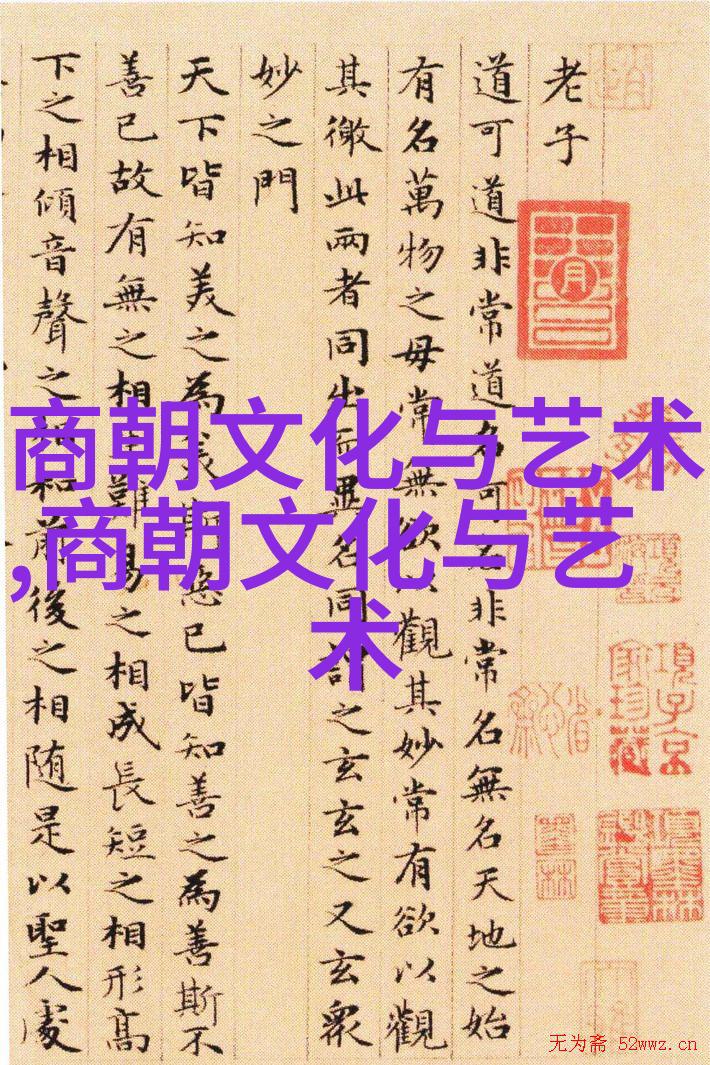 老子
道可道非常道名可名非常名無名天地之始
有名萬物之母常無欲以觀其妙常有欲以觀
其徼此兩者同出而異名同謂之玄玄之又玄衆
妙之門
天下皆知美之為美斯惡已皆知善之為善斯不
善已故有無之相生難易之相成長短之相形高
下之相傾音聲之相和前後之相随是以聖人處
商朝文化与艺术
,商朝文化与艺
术
項子京
家珍藏
无为斋 52wwz.cn